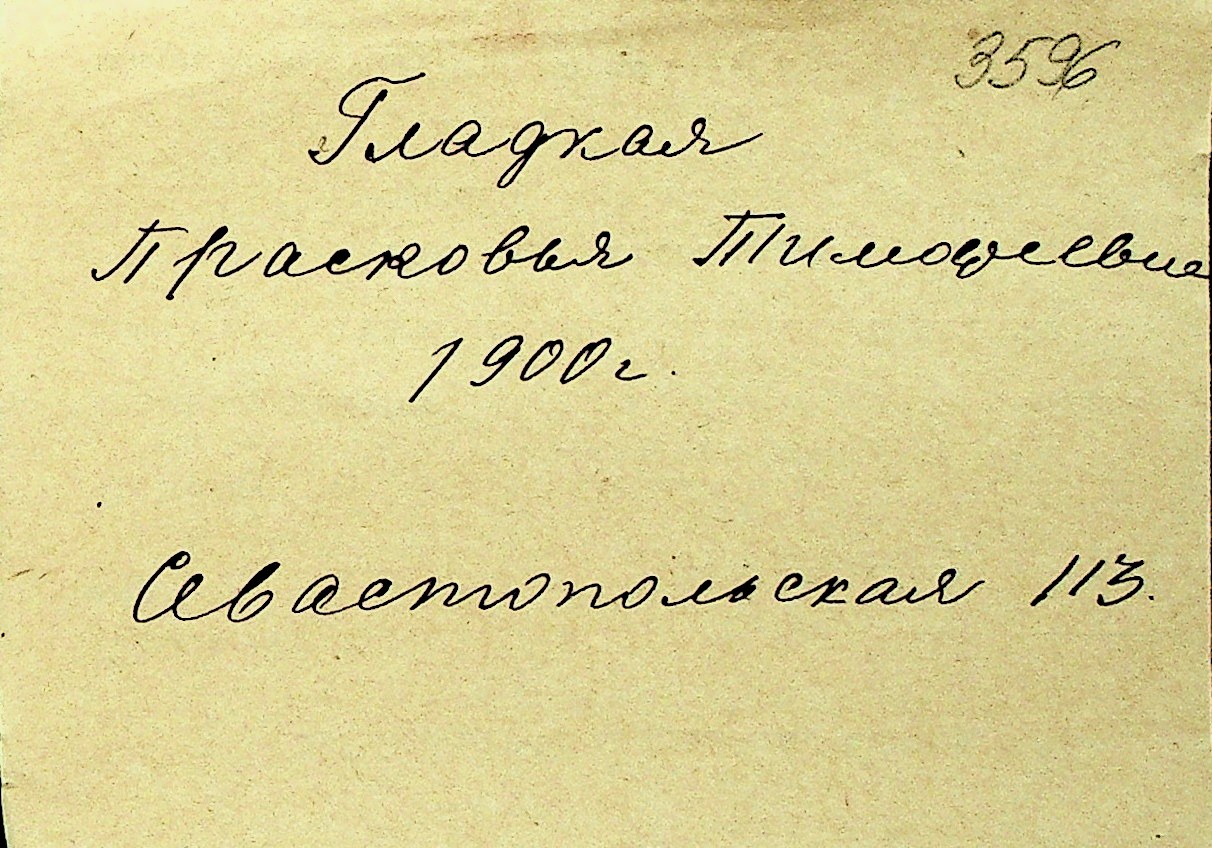 3596
Гладкая
Прасковья Тимофеевна
1900г.
Севастопольская 113.